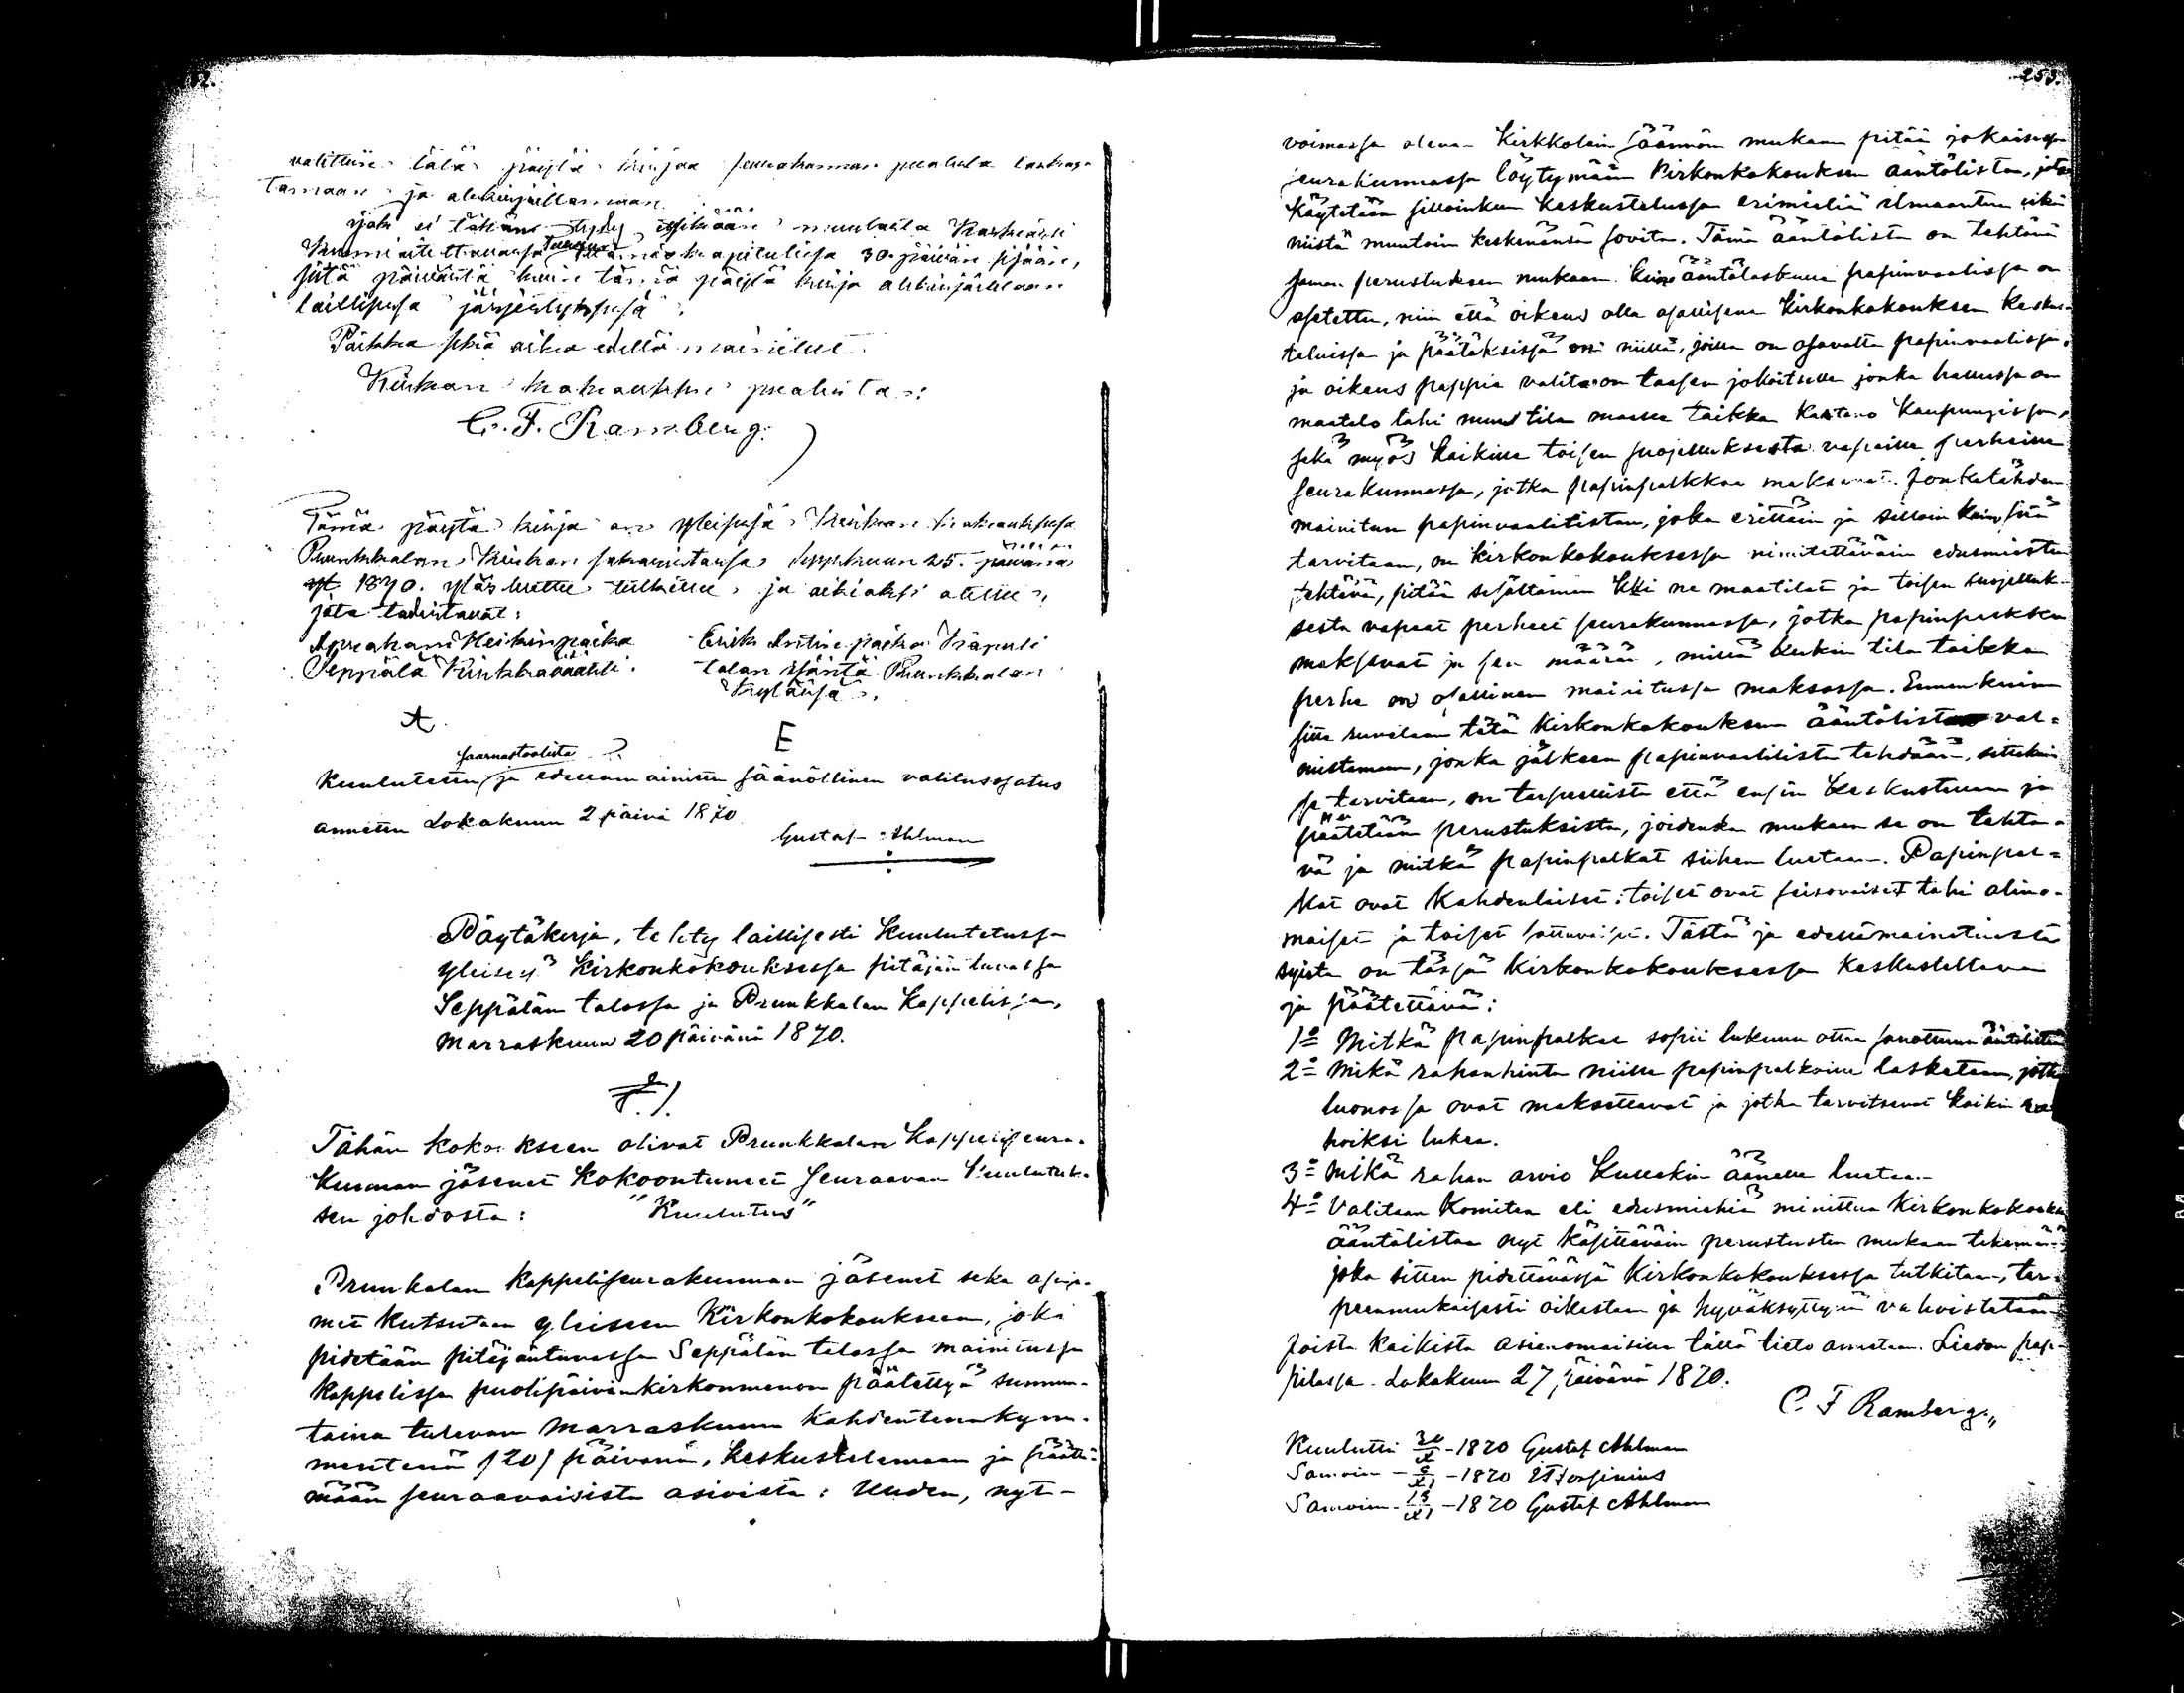 valittiin tätä pöytä kirjaa seurakunnan puolesta tarkas-
tamaan ja allekirjoittamaan.
joka ei tähän tydy
Tuomiokapitulissa 30 päivän sisään,
siitä päivästä kuin tämä pöytä kirja allekirjoitetaan
laillisessa järjestyksessä
Paikka sekä aika edellä mainitut.
Kirkon kokouksen puolesta:
C. F. Ramberg.
Tämä pöytä kirja on yleisessä Kirkon kokouksessa
Prunkkalan Kirkon sakaristossa Syyskuun 25. päivänä
1870. ylösluettu tutkittu ja oikiaksi otettu,
jota todistavat:
Abrahami Heikinpoika Erik Antin poika Käpuli
Seppälä talon isäntä Prunkkalan
Kylässä.
A. E
saarnastoolista ?
Kuulutettu ja edellämainittu säänöllinen valitusosotus
annettu Lokakuun 2 päivä 1870
Gustaf Ahlman
Pöytäkirja, tehty laillisesti Kuulutetussa
yleisesä Kirkonkokouksessa pitäjäntuvassa
Seppälän talossa ja Prunkkalan Kappelissa,
Marraskuun 20 päivänä 1870.
Tähän kokoukseen olivat Prunkkalan Kappeliseura-
kunnan jäsenet Kokoontuneet seuraavan Kuulutuk-
sen johdosta: "Kuulutus"
Prunkalan Kappeliseurakunnan jäsenet seka asuja-
met kutsutaan yleiseen Kirkonkokoukseen, joka
pidetään pitäjäntuvassa Seppälän talossa mainitussa
Kappelissa puolipäivänkirkonmenon päätettyä sunnun-
taina tulevan Marraskuun Kahdentenakym-
mentenä /20/ päivänä, keskustelemaan ja päättä-
mään seuraavaisista asioista: Uuden, nyt-
253.
voimassa olevan Kirkkolain säännön mukaan pitää jokaisessa
seurakunnassa löytymään Kirkonkokouksen ääntölistan, jota
Käytetään silloinkun Keskustelussa erimieliä ilmaantuu eikä
niistä muutoin keskenänsä sovita. Tämä ääntölista on tehtävä
saman perustuksen mukaan kuin ääntölaskuun papinvaalissa on
asetettu, niin että oikeus olla osallisena Kirkonkokouksen keskus-
teluissa ja päätöksissä on niillä, joilla on osavalta papinvaalissa,
ja oikeus pappia valita on taasen jokaitsella jonka hallussa on
maatalo tahi muu tila maalla taikka kartano Kaupungissa,
seka myös kaikilla toisen suojelluksesta vapailla perheillä
seurakunnassa, jotka papinpalkkaa maksavat. Jonkatähden
mainitun papinvaalilistan, joka erittäin ja silloin kuin sitä
tarvitaan, on kirkonkokouksessa nimitettäväin edusmiesten
tehtävä, pitää sisältämän kkki ne maatilat ja toisen suojelluk-
sesta vapaat perheet seurakunnassa, jotka papinpalkkaa
maksavat ja sen määrän, millä kukin tila taikka
perhe on osallinen mainitussa maksossa. Ennen kuin
sitte ruvetaan tätä Kirkonkokouksen ääntölista val-
mistamaan, jonka jälkeen papinvaalilista tehdään, sittekuin
se tarvitaan, on tarpeellista että ensin keskustellaan ja
päätetään perustuksista, joidenka mukaan se on tehtä-
vä ja mitkä papinpalkat siihen luetaan. Papinpal-
kat ovat Kahdenlaiset: toiset ovat seisovaiset tahi alino-
maiset ja toiset sattuvaiset. Tästä ja edellämainituista
syistä on tässä Kirkonkokouksessa Keskusteltava
ja päätettävä:
1º Mitkä papinpalkat sopii lukuun ottaa sanottuun ääntölistaan
2º Mikä rahanhinta niille papinpalkoille lasketaan, jotka
luonossa ovat maksettavat ja jotka tarvitsevat kaikin ra-
hoiksi lukea.
3º Mikä rahan arvio Kullekin äänelle luetaan
4º Valitaan Komitea eli edusmiehiä minittua Kirkonkokouksen
ääntölistaa nyt käsittäväin perustusten mukaan tekemään
joka sitten pidettävässä Kirkonkokouksessa tutkitaan, tar-
peenmukaisesti oikastaan ja hyväksyttynä vahvistetaan
Joista kaikista asianomaisille tällä tieto annetaan. Liedon pap-
pilassa. Lokakuun 27 päivänä 1870.
C. F Ramberg.„
Kuulutti 30/X - 1870 Gustaf Ahlman
Samoin - 6/XI - 1870
Samoin - 13/XI - 1870 Gustaf Ahlman